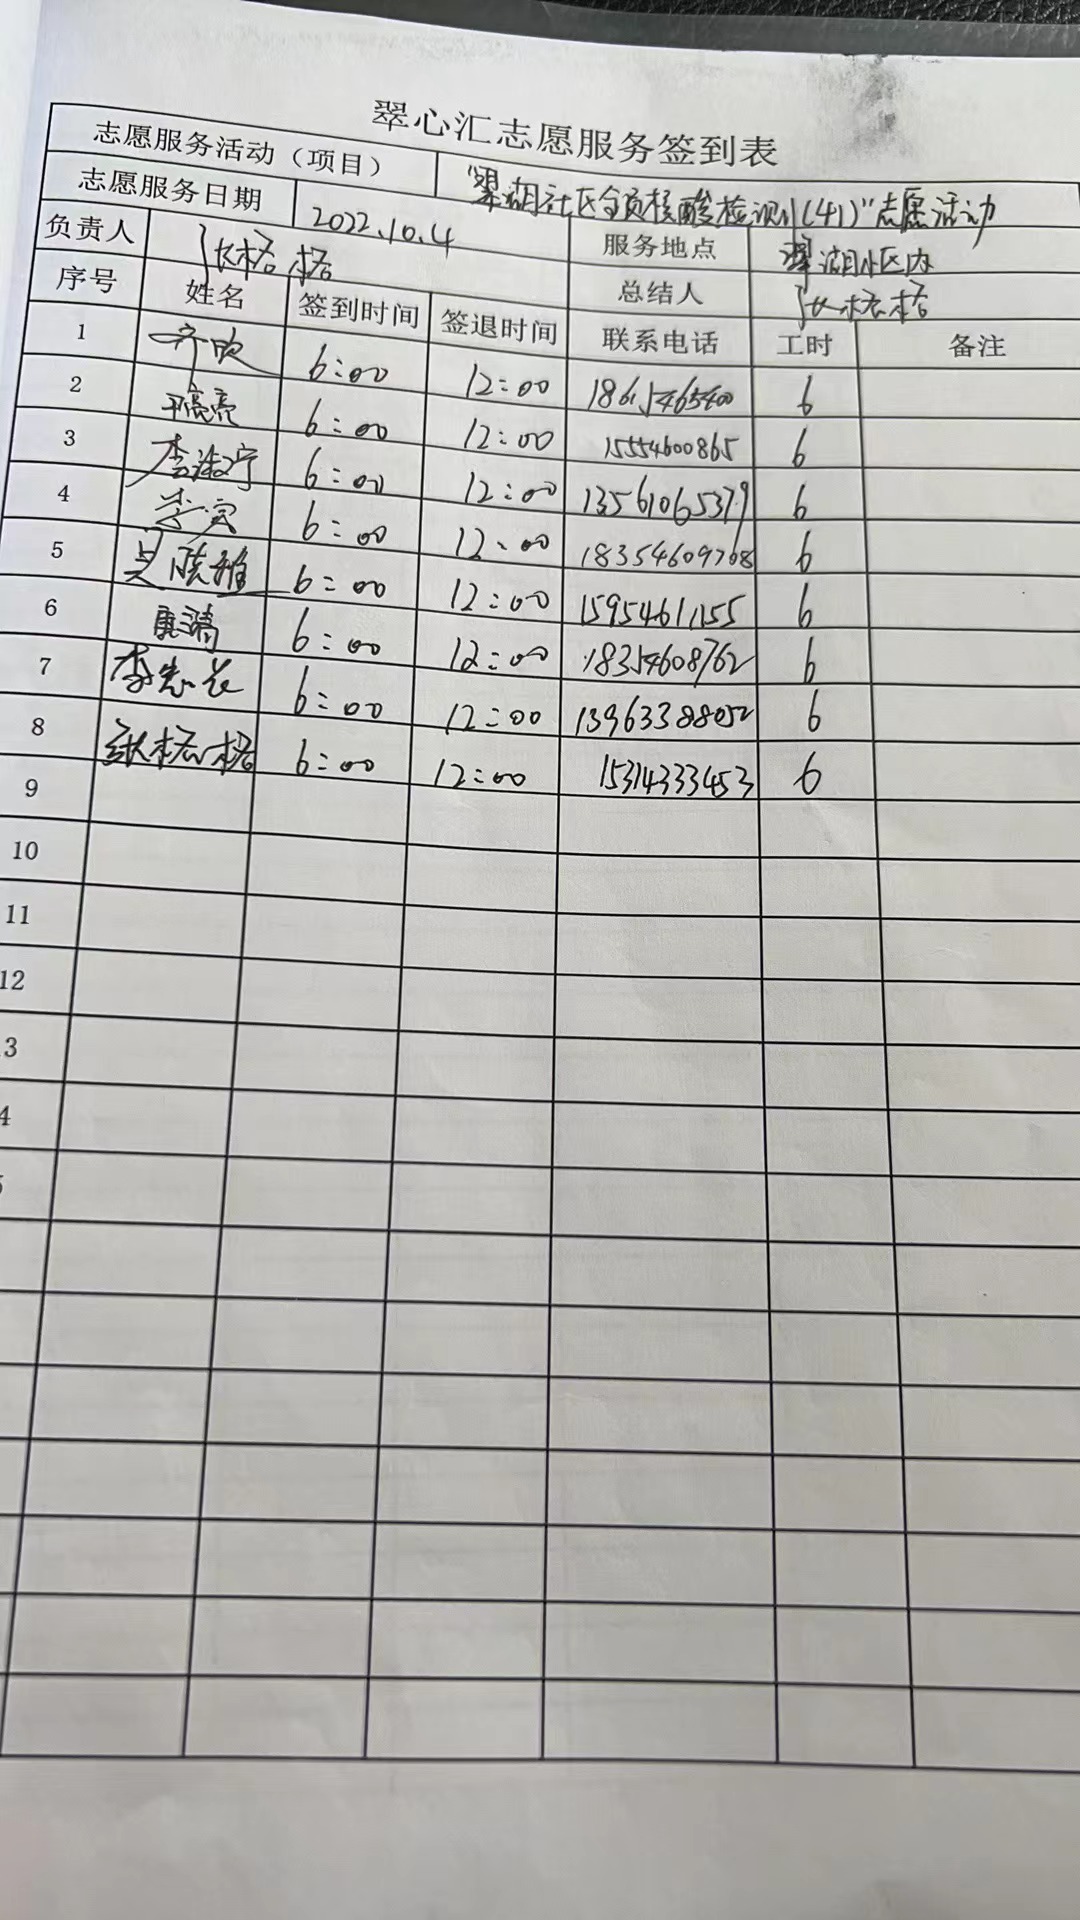 翠心汇志愿服务签到表
志愿服务活动（项目） "翠湖社区全员核酸检测(41)"志愿活动
志愿服务日期 2022.10.4 服务地点 翠湖小区内
负责人 张格格 总结人 张格格
序号 姓名 签到时间 签退时间 联系电话 工时 备注
1 6:00 12:00 6
2 亮亮 6:00 12:00 15554600865 6
3 李淑宁 6:00 12:00 13561065379 6
4 6:00 12:00 18354609768 6
5 6:00 12:00 15954611155 6
6 6:00 12:00 18354608762 6
7 李志 6:00 12:00 13963388052 6
8 张格格 6:00 12:00 15314333453 6
9
10
11
12
3
4
5